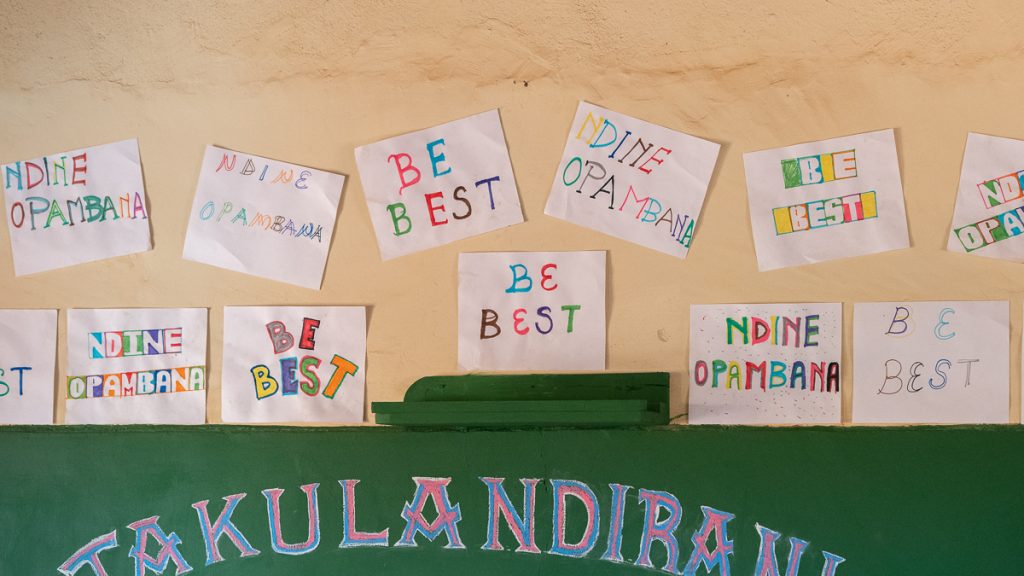 NDINE
OPAMBANA
NDINE
OPAMBANA
BE
BEST
NDINE
OPAMBANA
BE
BEST
BE
BEST
NDINE
OPAMBANA
BE
BEST
NDINE
OPAMBANA
BE
BEST
TAKULANDIRANI